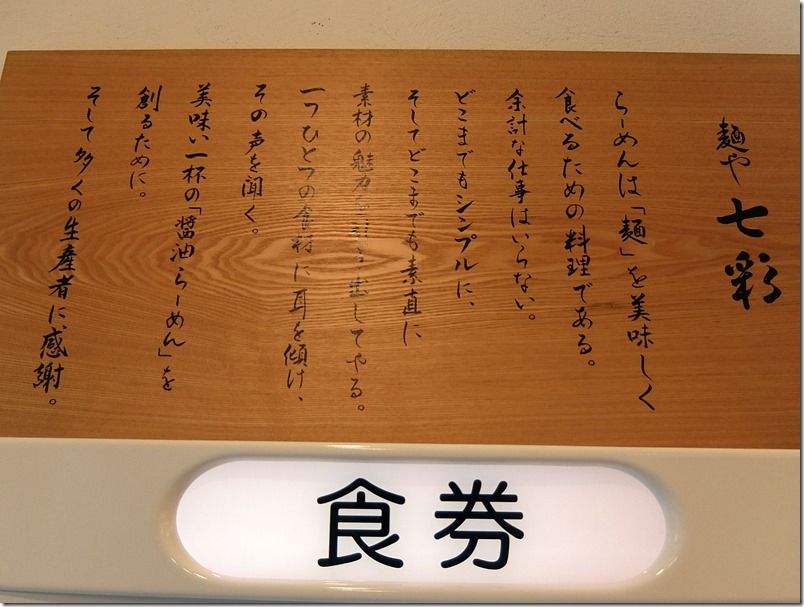 麺や 七彩
らーめんは「麺」を美味しく
食べるための料理である。
余計な仕事はいらない。
どこまでもシンプルに、
そしてどこまでも素直に
素材の魅力を引き出してやる。
一つひとつの食材に耳を傾け、
その声を聞く。
美味い一杯の「醤油らーめん」を
創るために。
そして多くの生産者に感謝。
食券